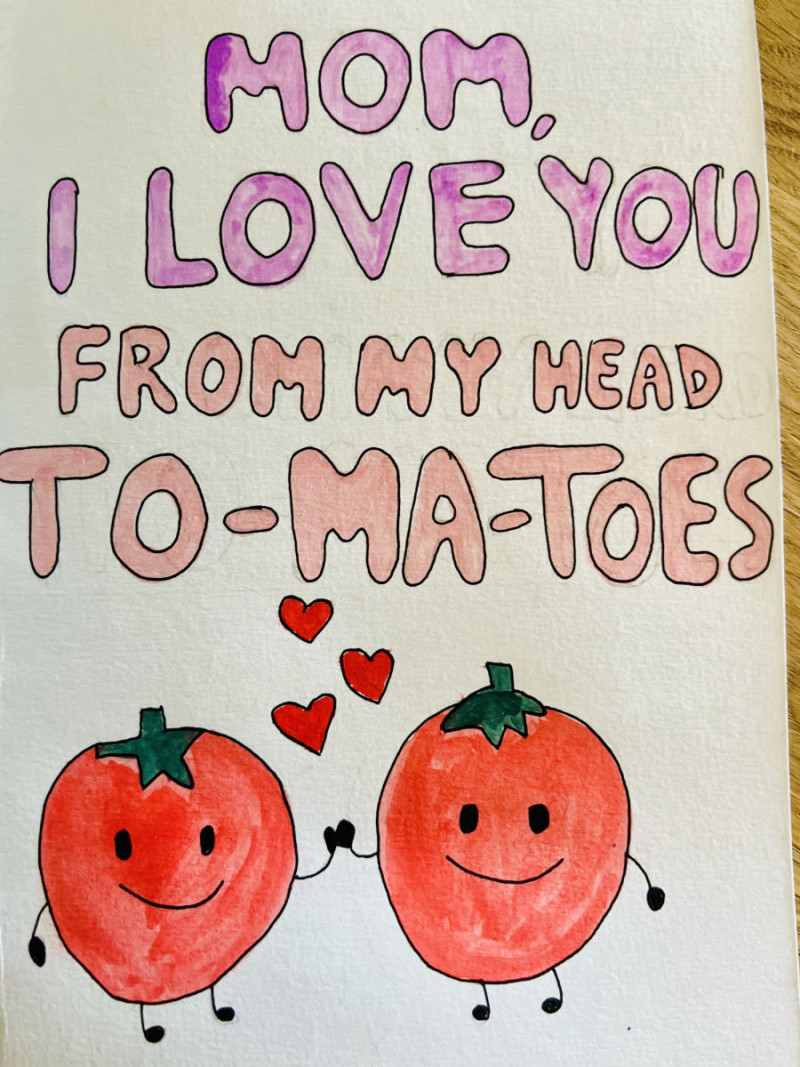 MOM,
I LOVE YOU
FROM MY HEAD
TO-MA-TOES